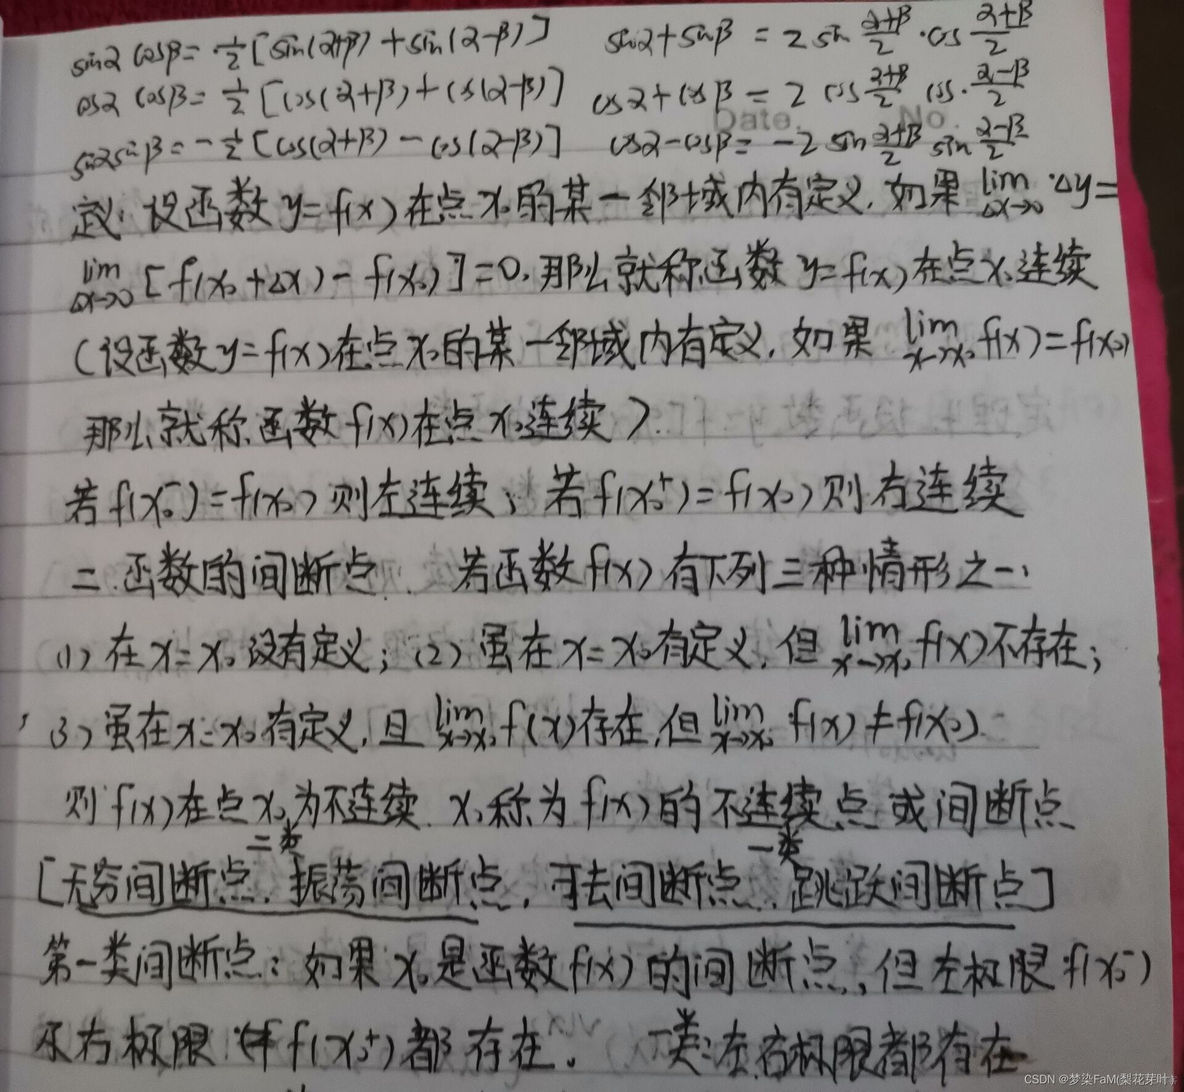 sinα cosβ = 1/2 [sin(α+β) + sin(α-β)] sinα + sinβ = 2 sin (α+β)/2 · cos (α+β)/2
cosα cosβ = 1/2 [cos(α+β) + cos(α-β)] cosα + cosβ = 2 cos (α+β)/2 cos · (α-β)/2
Date. No.
sinα sinβ = -1/2 [cos(α+β) - cos(α-β)] cosα - cosβ = -2 sin (α+β)/2 sin (α-β)/2
定义: 设函数 y=f(x) 在点 x₀ 的某一邻域内有定义, 如果 lim Δx→0 Δy =
lim Δx→0 [f(x₀+Δx) - f(x₀)] = 0, 那么就称函数 y=f(x) 在点 x₀ 连续
(设函数 y=f(x) 在点 x₀ 的某一邻域内有定义, 如果 lim x→x₀ f(x) = f(x₀)
那么就称函数 f(x) 在点 x₀ 连续)
若 f(x₀⁻) = f(x₀) 则左连续; 若 f(x₀⁺) = f(x₀) 则右连续
二. 函数的间断点. 若函数 f(x) 有下列三种情形之一:
(1) 在 x=x₀ 没有定义; (2) 虽在 x=x₀ 有定义, 但 lim x→x₀ f(x) 不存在;
(3) 虽在 x=x₀ 有定义, 且 lim x→x₀ f(x) 存在, 但 lim x→x₀ f(x) ≠ f(x₀)
则 f(x) 在点 x₀ 为不连续. x₀ 称为 f(x) 的不连续点或间断点
二类 一类
[无穷间断点. 振荡间断点, 可去间断点. 跳跃间断点]
第一类间断点: 如果 x₀ 是函数 f(x) 的间断点, 但左极限 f(x₀⁻)
及右极限 f(x₀⁺) 都存在. 一类: 左右极限都存在
CSDN @梦染FaM(梨花芽叶)